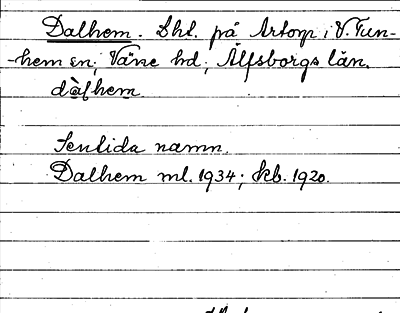 Dalhem. Lhl. på Artorp i V. Tun-
-hem sn; Väne hd; Älfsborgs län.
dàlhem
Sentida namn.
Dalhem ml. 1934; kb. 1920.